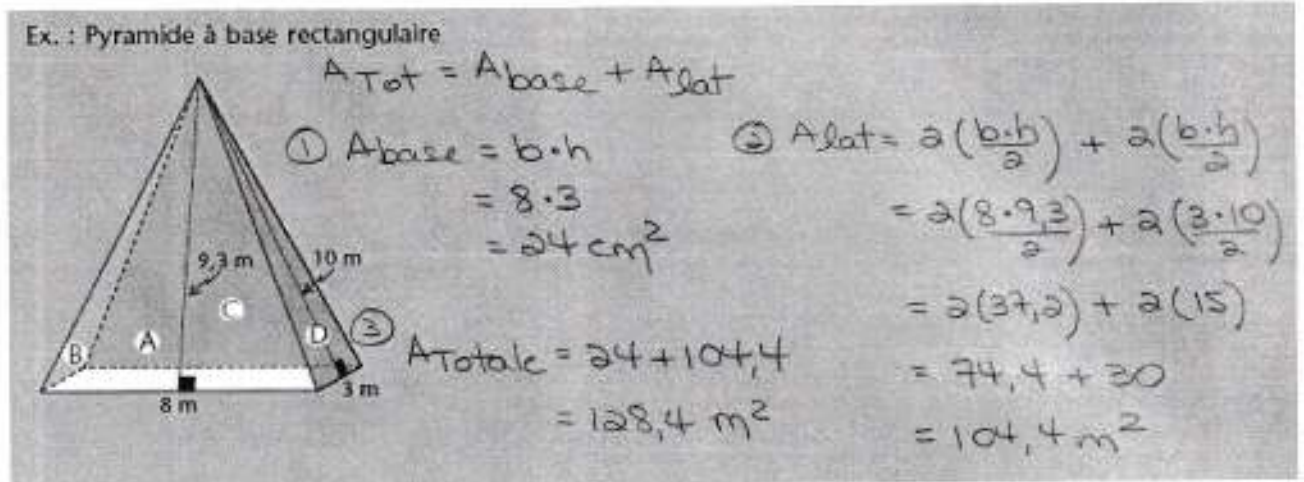 Ex. : Pyramide à base rectangulaire
A Tot = A base + A lat
① A base = b·h
= 8·3
= 24 cm²
② A lat = 2(b·h/2) + 2(b·h/2)
= 2(8·9,3/2) + 2(3·10/2)
= 2(37,2) + 2(15)
= 74,4 + 30
= 104,4 m²
③ A Totale = 24 + 104,4
= 128,4 m²
9,3 m
10 m
A
B
C
D
8 m
3 m